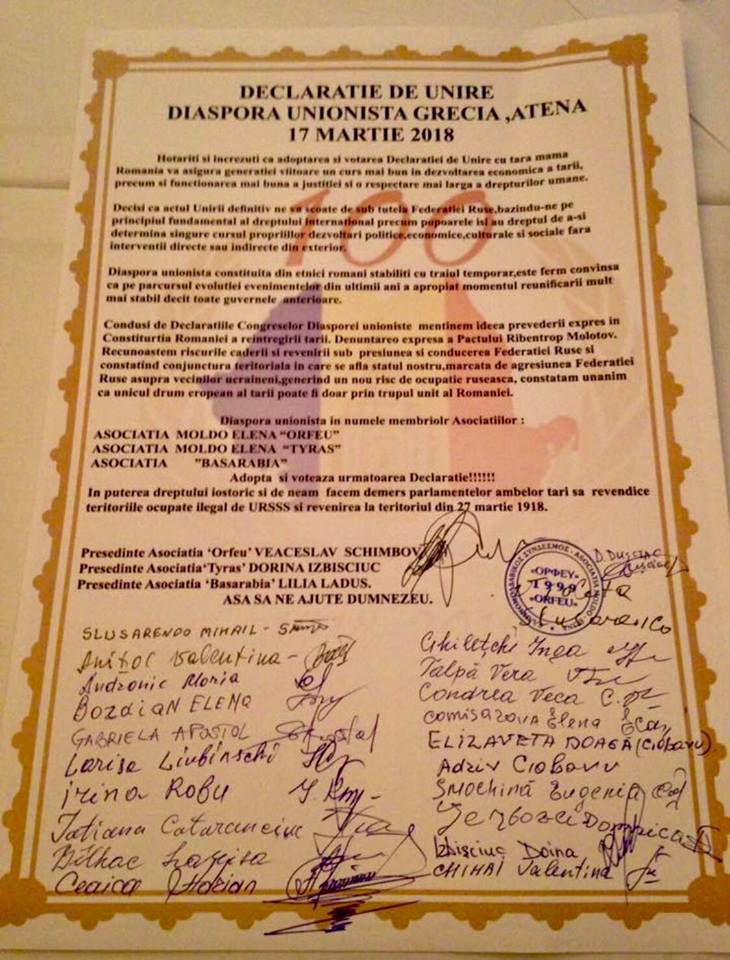 DECLARATIE DE UNIRE
DIASPORA UNIONISTA GRECIA ,ATENA
17 MARTIE 2018
Hotariti si increzuti ca adoptarea si votarea Declaratiei de Unire cu tara mama
Romania va asigura generatiei viitoare un curs mai bun in dezvoltarea economica a tarii,
precum si functionarea mai buna a justitiei si o respectare mai larga a drepturilor umane.
Decisi ca actul Unirii definitiv ne va scoate de sub tutela Federatiei Ruse,bazindu-ne pe
principiul fundamental al dreptului international precum popoarele isi au dreptul de a-si
determina singure cursul propriilor dezvoltari politice,economice,culturale si sociale fara
interventii directe sau indirecte din exterior.
100
Diaspora unionista constituita din etnici romani stabiliti cu traiul temporar,este ferm convinsa
ca pe parcursul evolutiei evenimentelor din ultimii ani a apropiat momentul reunificarii mult
mai stabil decit toate guvernele anterioare.
Condusi de Declaratiile Congreselor Diasporei unioniste mentinem ideea prevederii expres in
Constiturtia Romaniei a reintregirii tarii. Denuntareo expresa a Pactului Ribentrop Molotov.
Recunoastem riscurile caderii si revenirii sub presiunea si conducerea Federatiei Ruse si
constatind conjunctura teritoriala in care se afla statul nostru,marcata de agresiunea Federatiei
Ruse asupra vecinilor ucraineni,generind un nou risc de ocupatie ruseasca, constatam unanim
ca unicul drum eropean al tarii poate fi doar prin trupul unit al Romaniei.
Diaspora unionista in numele membriolr Asociatiilor :
ASOCIATIA MOLDO ELENA "ORFEU"
ASOCIATIA MOLDO ELENA "TYRAS"
ASOCIATIA "BASARABIA"
Adopta si voteaza urmatoarea Declaratie!!!!!!
In puterea dreptului iostoric si de neam facem demers parlamentelor ambelor tari sa revendice
teritoriile ocupate ilegal de URSSS si revenirea la teritoriul din 27 martie 1918.
Presedinte Asociatia 'Orfeu' VEACESLAV SCHIMBOV
Presedinte Asociatia'Tyras' DORINA IZBISCIUC
Presedinte Asociatia 'Basarabia' LILIA LADUS.
ASA SA NE AJUTE DUMNEZEU.
«ΟΡΦΕΥ»
1999
«ORFEU»
SLUSARENCO MIHAIL -
Anițoc Valentina -
Andronic Maria
BozdiaN ELENA
GABRIELA APOSTOL
Larisa Liubinschi
irina Robu
Tatiana Cataranciuc
Ghilețchi Inga
Talpă Vera
Condrea Veca
Comisarova Elena
ELIZAVETA DOAGĂ (CIOBANU).
Smochină Eugenia
Izbișciuc Doina
CHIHAI Valentina